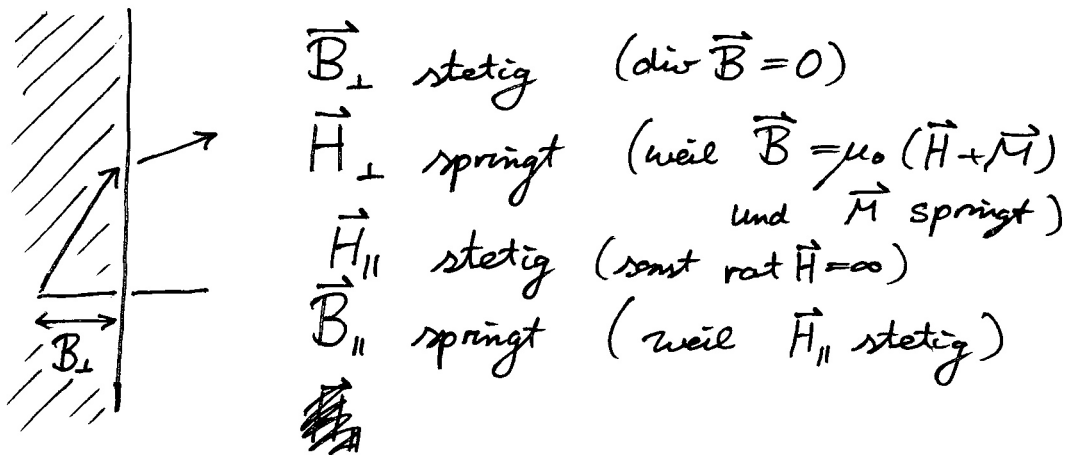 B⃗⊥ stetig (div B⃗ = 0)
H⃗⊥ springt (weil B⃗ = μ₀ (H⃗ + M⃗)
und M⃗ springt)
H⃗∥ stetig (sonst rot H⃗ = ∞)
B⃗∥ springt (weil H⃗∥ stetig)
B⊥